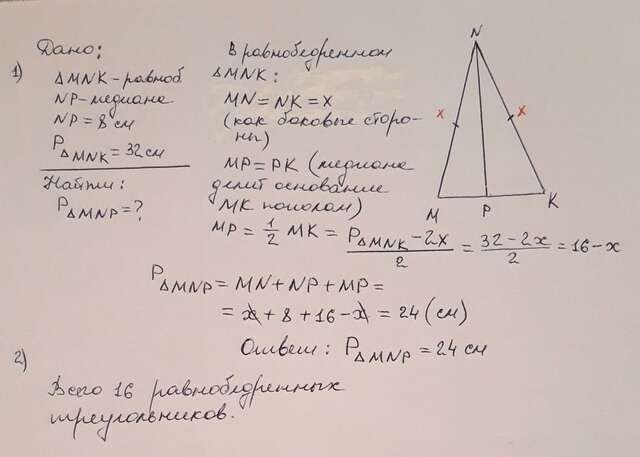 Дано:
1)
ΔMNK - равноб
NP - медиана
NP = 8 см
P ΔMNK = 32 см
Найти:
P ΔMNP = ?
В равнобедренном
ΔMNK:
MN = NK = x
(как боковые сторо-
ны)
MP = PK (медиана
делит основание
MK пополам)
MP = 1/2 MK = (P ΔMNK - 2x)/2 = (32 - 2x)/2 = 16 - x
N
x x
M P K
P ΔMNP = MN + NP + MP =
= x + 8 + 16 - x = 24 (см)
Ответ: P ΔMNP = 24 см
2)
Всего 16 равнобедренных
треугольников.